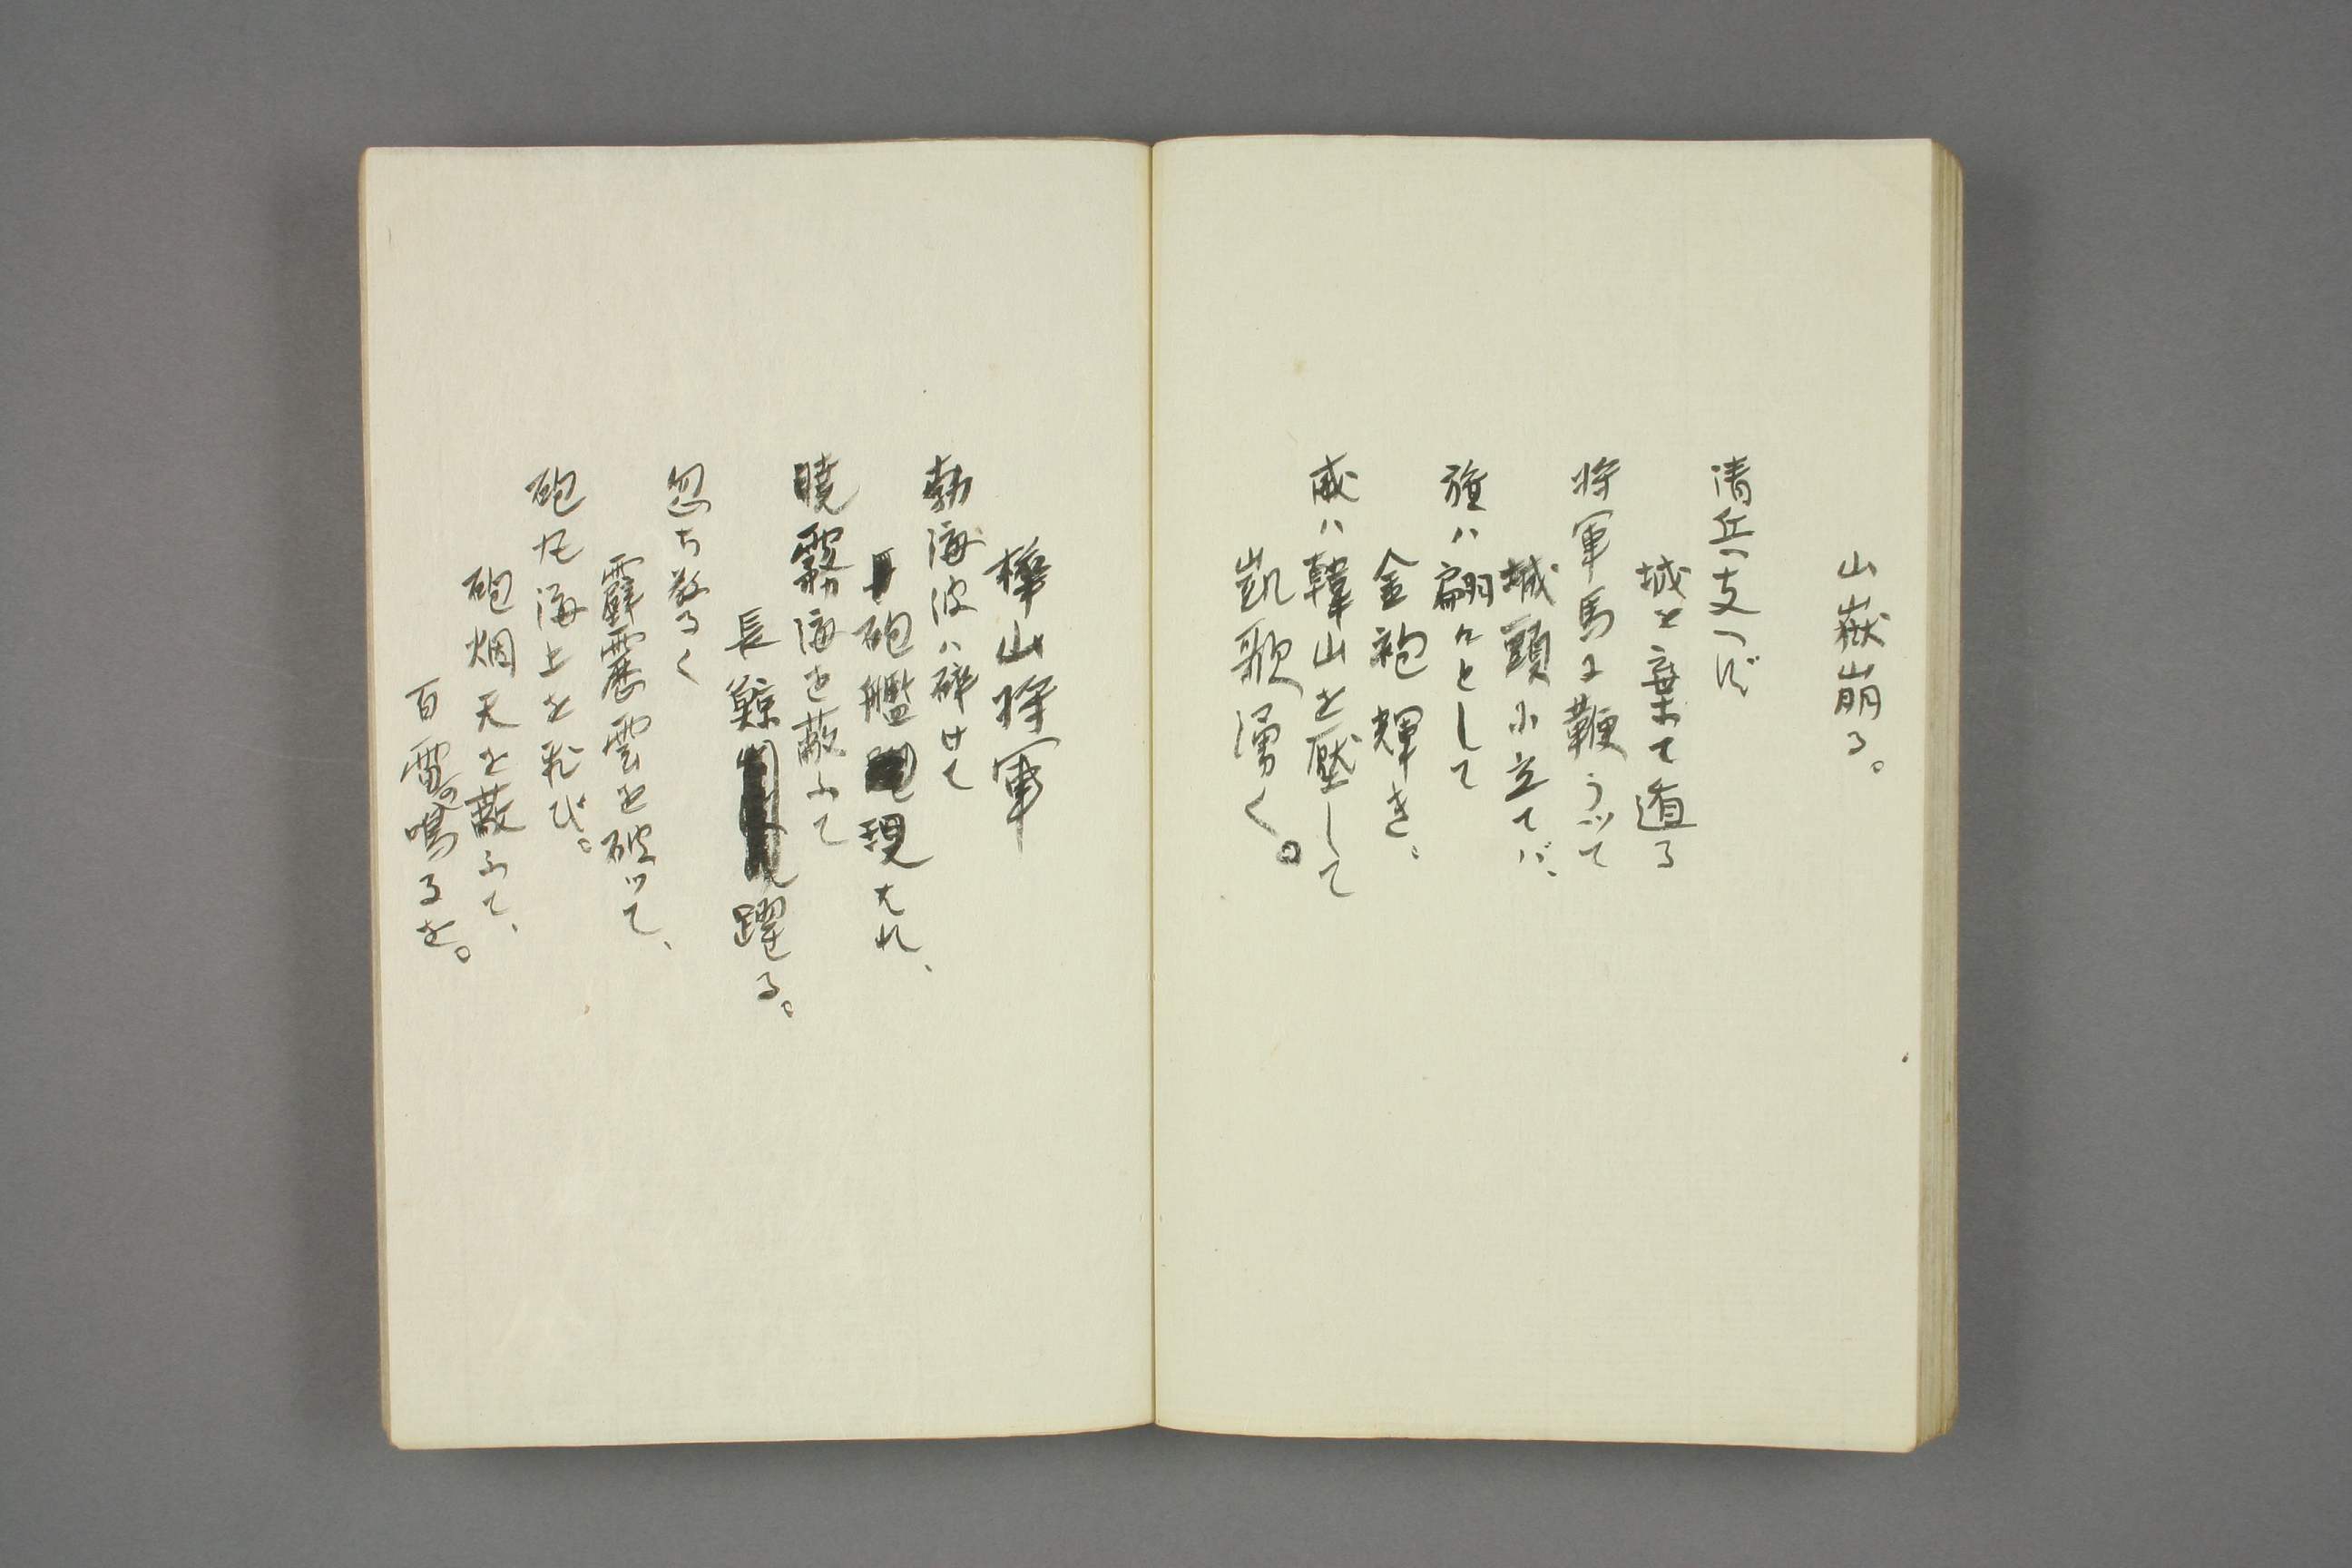 山嶽崩る。
清兵支へず
城を棄てゝ遁る
将軍馬に鞭うッて
城頭に立てバ、
旗ハ翩々として
金袍輝き、
威ハ韓山を壓して
凱歌湧く。
樺山将軍
勃海波ハ碎けて
砲艦現はれ、
曉霧海を蔽ふて
長鯨躍る。
忽ち驚ろく
霹靂雲を破ッて、
砲丸海上を飛び。
砲烟天を蔽ふて、
百雷の鳴るを。